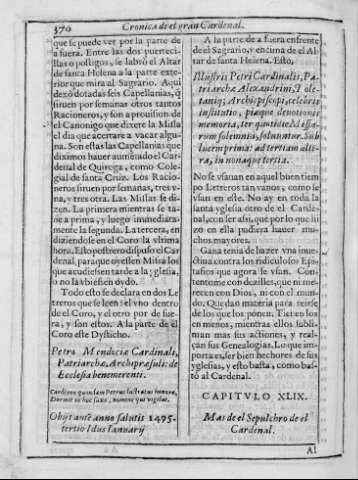 370
Cronica de el gran Cardenal.
que se puede ver por la parte de
a fuera. Entre las dos puertecillas
o postigos, se labrò el Altar
de santa Helena a la parte exterior
que mira al Sagrario. Aqui
dexò dotadas seis Capellanias, q̃
siruen por semanas otros tantos
Racioneros, y son a prouision de
el Canonigo que dixere la Missa
el dia que acertare a vacar alguna.
Son estas las Capellanias que
diximos hauer aumentado el Cardenal
de Quiroga, como Colegial
de santa Cruz. Los Racioneros
siruen por semanas, tres vna,
y tres otra. Las Missas se dizen.
La primera mientras se tañe
a prima, y luego immediatamente
la segunda. La tercera, en
diziendose en el Coro la vltima
hora. Esto postrero dispuso el Cardenal,
para que oyessen Missa los
que acudiessen tarde a la yglesia,
o no la vbiessen oydo.
Todo esto se declara en dos Letreros
que se leen: el vno dentro
de el Coro, y el otro por de fuera,
y son estos. A la parte de el
Coro este Dysticho.
Petro Mendociæ Cardinali,
Patriarchæ, Archipræsuli: de
Ecclesia benemerenti.
Cardineo quondam Petrus lustratus honore,
Dormit in hoc saxo, nomine qui vigilat.
Obijt autẽ anno salutis 1495.
tertio Idus Ianuarij
A la parte de a fuera enfrente
de el Sagrario, y encima de el Altar
de santa Helena. Esto.
Illustris Petri Cardinalis, Patriarchæ
Alexandrini, Toletaniq;
Archiepiscopi, celebris
institutio, piæque deuotionis
memoria, ter quotidiè Missarum
solemnia, soluuntur. Sub
lucem prima: ad tertiam altera,
in nonaque tertia.
No se vsauan en aquel buen tiempo
Letreros tan vanos, como se
vsan en este. No ay en toda la
santa yglesia otro de el Cardenal,
con ser assi, que por lo que hizo
en ella pudiera hauer muchos
mayores.
Gana tenia de hazer vna inuectiua
contra los ridiculosos Epitafios
que agora se vsan. Contentome
con dezilles, que ni merecen
con Dios, ni con el mundo.
Que dan materia para reirse
de los que los ponen. Tienenlos
en menos, mientras ellos subliman
mas sus actiones, y realçan
sus Genealogias. Lo que importa
es, ser bien hechores de sus
yglesias, y esto basta, como bastò
al Cardenal.
CAPITVLO XLIX.
Mas de el Sepulchro de el
Cardenal.
Al